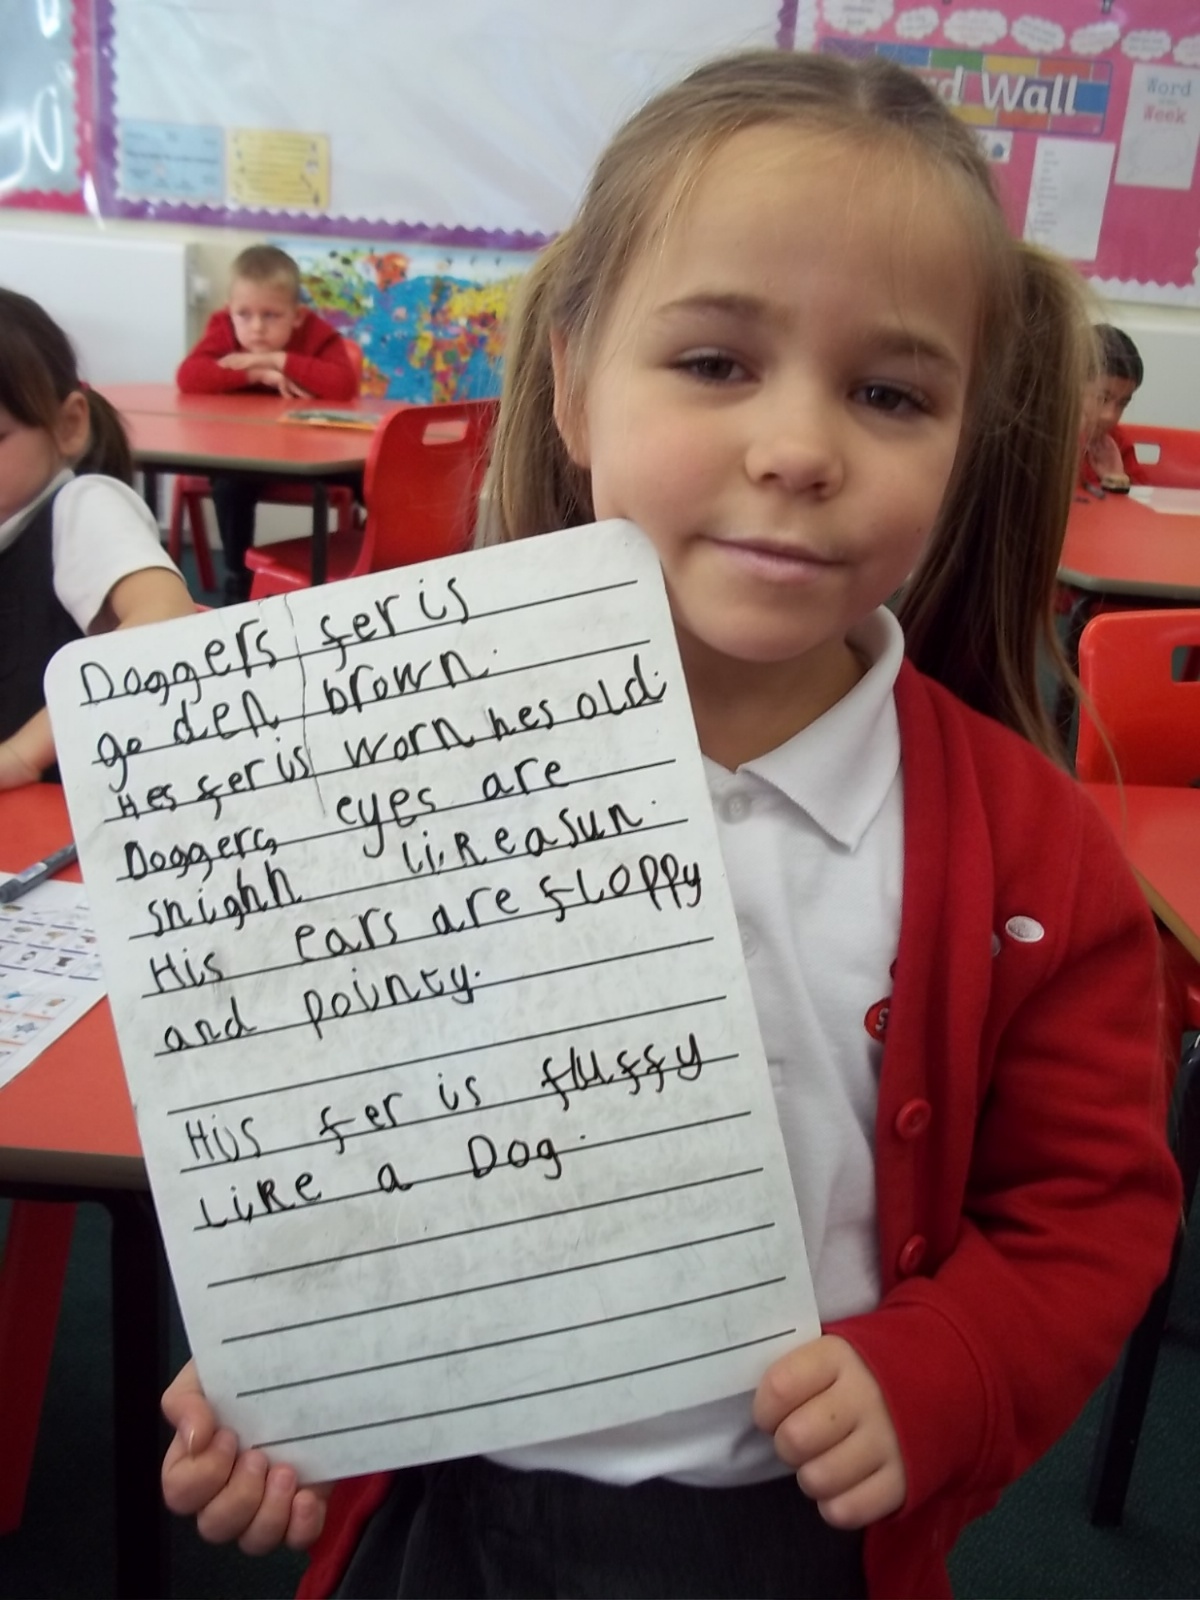 Word Wall
Word
Week
Doggers fer is
go den brown.
Hes fer is worn hes old.
Doggers eyes are
snighn like a sun.
His ears are floppy
and pointy.
His fer is fluffy
Like a Dog.